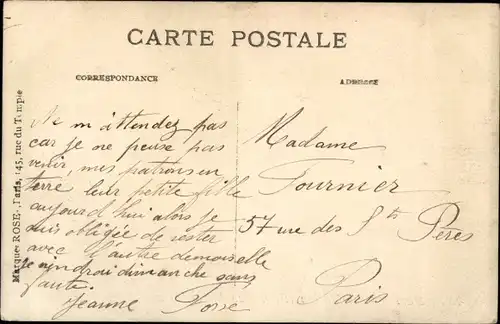 CARTE POSTALE
CORRESPONDANCE
ADRESSE
Marque ROSE, Paris, 145, rue du Temple
Ne m'attendez pas
car je ne peuse pas
venir, mes patrons en
terre leur petite fille
aujourd'hui alors je
suis obligée de rester
avec l'autre demoiselle
je viendrai dimanche sans
faute.
Jeanne Fosse
Madame
Fournier
57 rue des Sts Pères
Paris